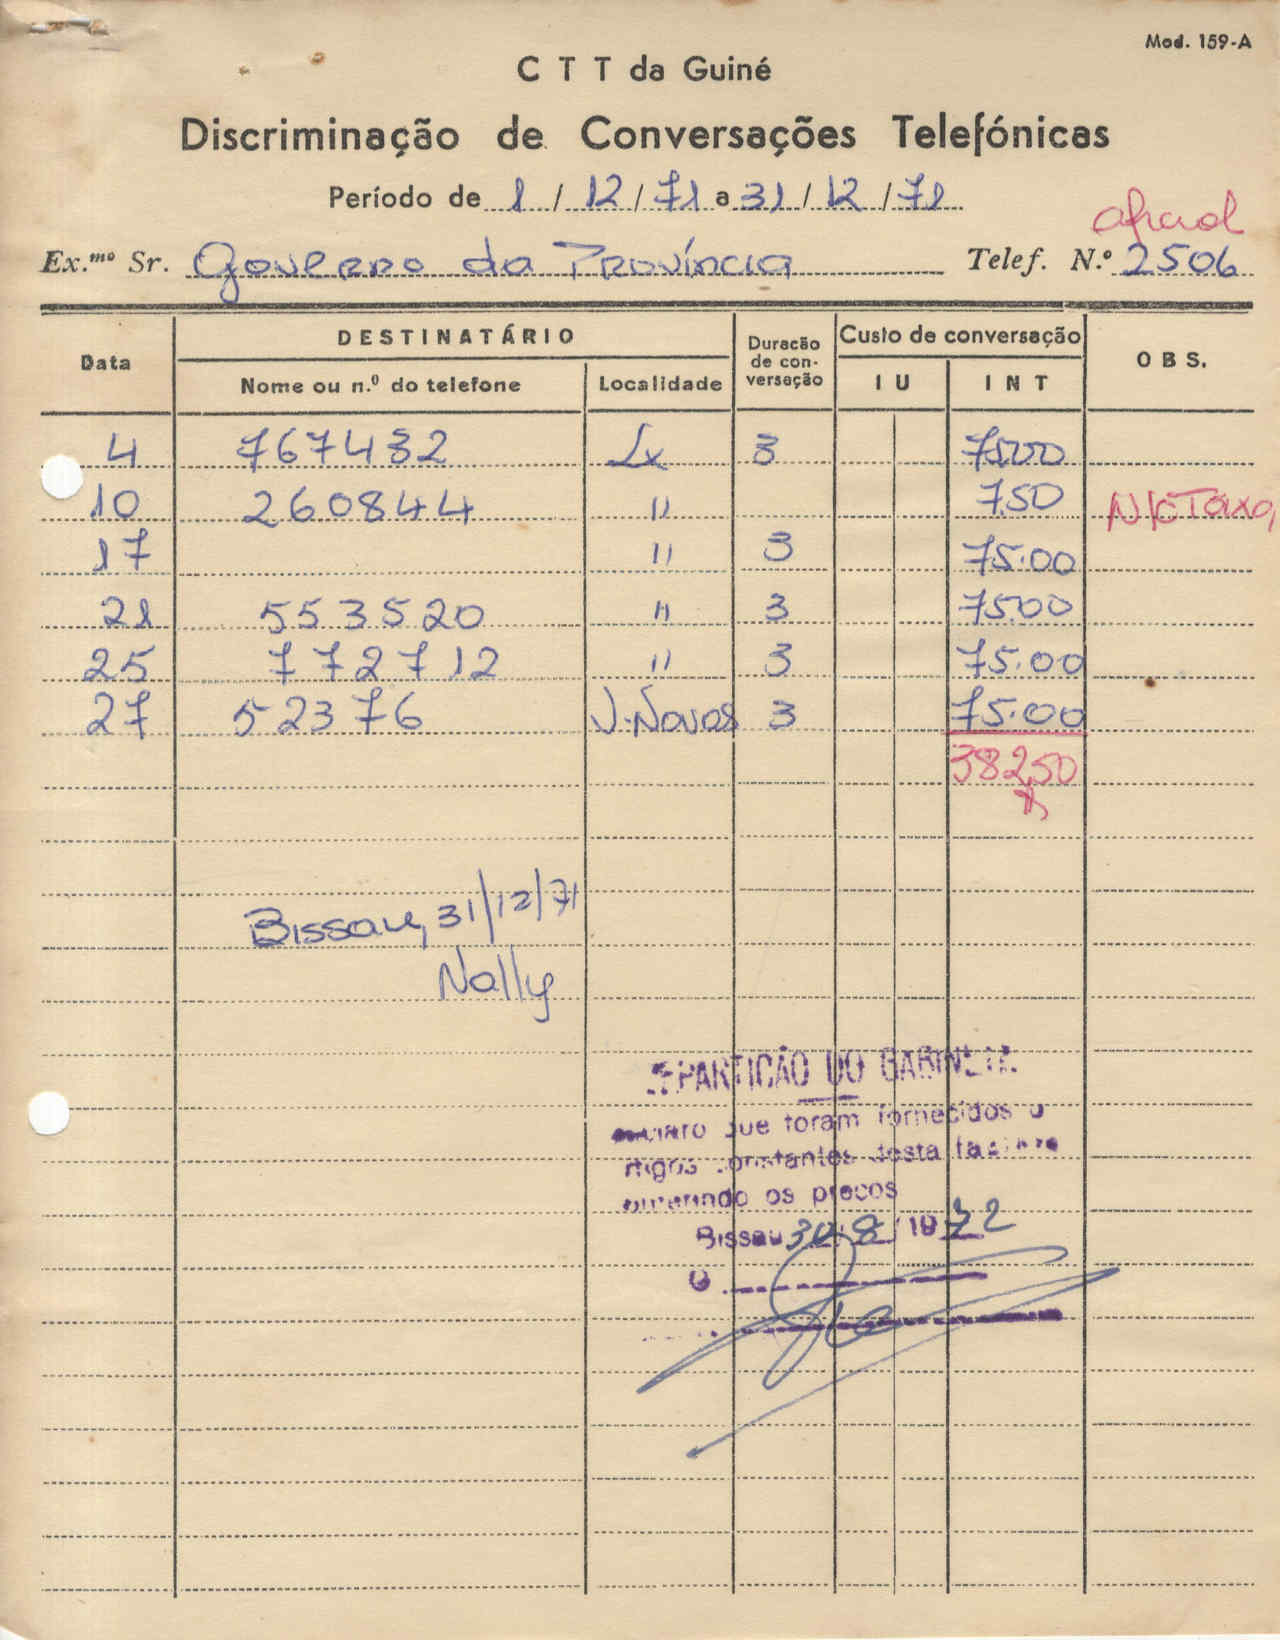 Mod. 159-A
C T T da Guiné
Discriminação de Conversações Telefónicas
Período de 1 / 12 / 71 a 31 / 12 / 71
Ex.mo Sr. Governo da Província Telef. N.º 2506
Data DESTINATÁRIO Duracão de con-versação Custo de conversação O B S.
Nome ou n.º do telefone Localidade I U I N T
4 767432 Lx 3 75.00
10 260844 " 7.50 N/c Taxa
17 " 3 75.00
21 553520 " 3 75.00
25 772712 " 3 75.00
27 52376 V. Novas 3 75.00
382.50
Bissau, 31/12/71
Nally
REPARTIÇÃO DO GABINETE
que foram fornecidos o
constantes desta
os preços
Bissau 30/8/1972
O